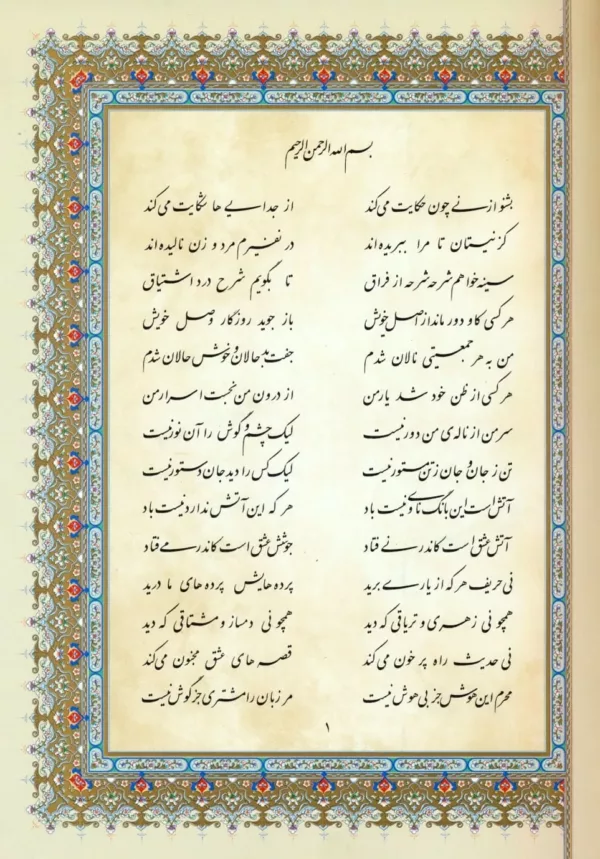 بسم الله الرحمن الرحیم
بشنو از نے چون حکایت می‌کند از جدایی ها شکایت می‌کند
کز نیستان تا مرا ببریده‌اند در نفیرم مرد و زن نالیده‌اند
سینه خواهم شرحه شرحه از فراق تا بگویم شرح درد اشتیاق
هر کسی کاو دور ماند از اصل خویش باز جوید روزگار وصل خویش
من به هر جمعیتی نالان شدم جفت بدحالان و خوش حالان شدم
هر کسی از ظن خود شد یار من از درون من نجست اسرار من
سر من از ناله‌ی من دور نیست لیک چشم و گوش را آن نور نیست
تن ز جان و جان ز تن مستور نیست لیک کس را دید جان دستور نیست
آتش است این بانگ نای و نیست باد هر که این آتش ندارد نیست باد
آتش عشق است کاندر نے فتاد جوشش عشق است کاندر مے فتاد
نی حریف هر که از یارے برید پرده هایش پرده های ما درید
همچو نی زهری و تریاقی که دید همچو نی دمساز و مشتاقی که دید
نی حدیث راه پر خون می‌کند قصه های عشق مجنون می‌کند
محرم این هوش جز بی هوش نیست مر زبان را مشتری جز گوش نیست
۱